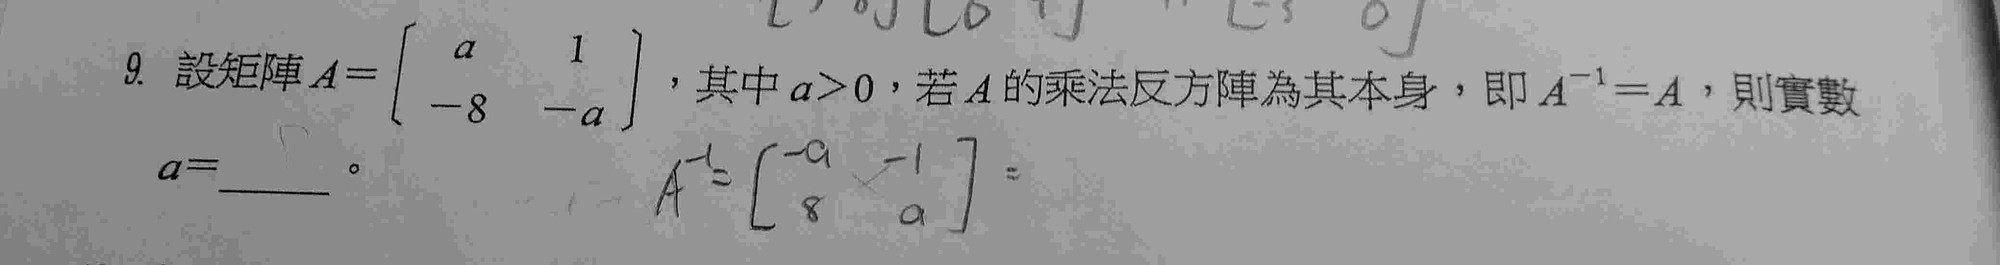 9. 設矩陣 A=[a 1
-8 -a],其中 a>0,若 A 的乘法反方陣為其本身,即 A⁻¹=A,則實數
a=____。
A⁻¹=[-a -1
8 a]=